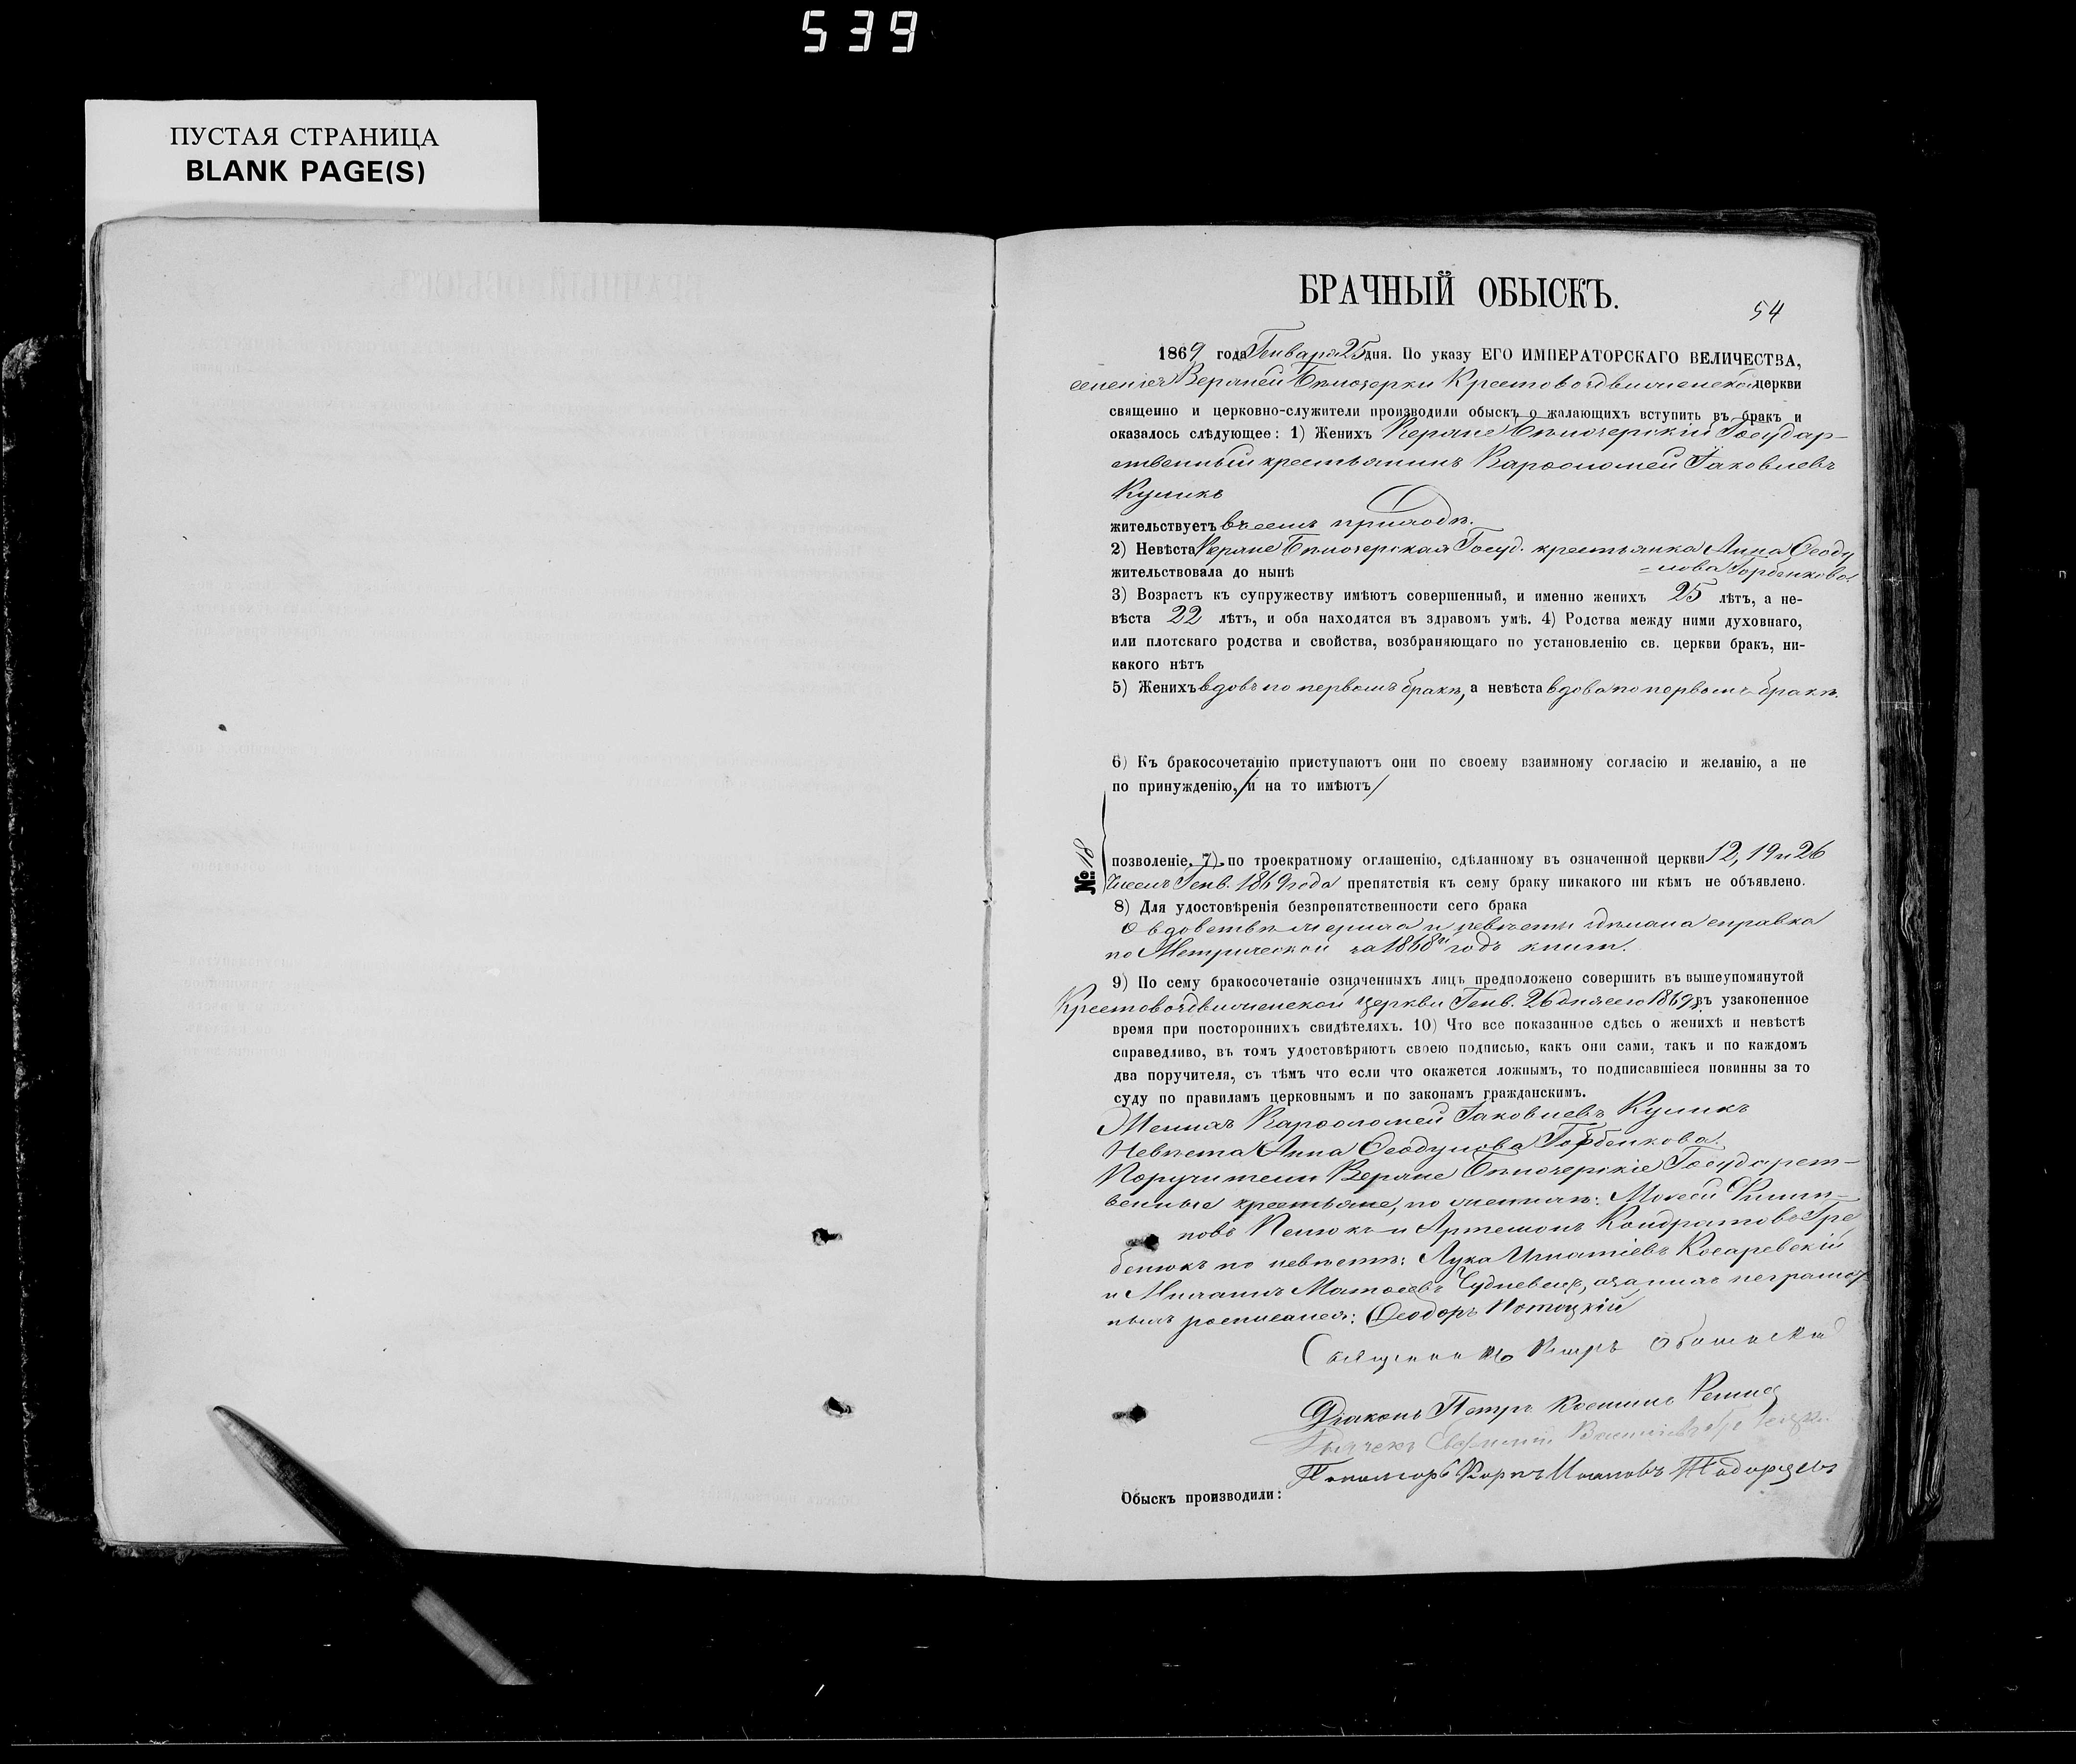 539
ПУСТАЯ СТРАНИЦА
BLANK PAGE(S)
БРАЧНЫЙ ОБЫСКЪ.
54
1869 года Генваря 25 дня. По указу ЕГО ИМПЕРАТОРСКАГО ВЕЛИЧЕСТВА,
Крестовоздвиженской церкви
священно и церковно-служители производили обыскъ о жалающихъ вступить въ бракъ и
оказалось слѣдующее: 1) Женихъ Государ-
ственный крестьянинъ Варѳоломей Іаковлевъ
Куликъ
жительствуетъ въ семъ приходѣ.
2) Невѣста Госуд. крестьянка Анна Ѳеоду
жительствовала до нынѣ = лова Горбенкова
3) Возрастъ къ супружеству имѣютъ совершенный, и именно женихъ 25 лѣтъ, а не-
вѣста 22 лѣтъ, и оба находятся въ здравомъ умѣ. 4) Родства между ними духовнаго,
или плотскаго родства и свойства, возбраняющаго по установленію св. церкви бракъ, ни-
какого нѣтъ
5) Женихъ вдовъ по первомъ бракѣ, а невѣста вдова по первомъ бракѣ.
6) Къ бракосочетанію приступаютъ они по своему взаимному согласію и желанію, а не
по принужденію, /и на то имѣютъ/
№ 18
позволеніе. 7) по троекратному оглашенію, сдѣланному въ означенной церкви 12, 19 и 26
чиселъ Генв. 1869 года препятствія къ сему браку никакого ни кѣмъ не объявлено.
8) Для удостовѣренія безпрепятственности сего брака
о вдовствѣ жениха и невѣсты дѣлана справка
по Метрической за 1868й годъ книгѣ.
9) По сему бракосочетаніе означенныхъ лицъ предположено совершить въ вышеупомянутой
Крестовоздвиженской церкви Генв. 26 дня сего 1869 г. въ узаконенное
время при постороннихъ свидѣтеляхъ. 10) Что все показанное сдѣсь о женихѣ и невѣстѣ
справедливо, въ томъ удостовѣряютъ своею подписью, какъ они сами, такъ и по каждомъ
два поручителя, съ тѣмъ что если что окажется ложнымъ, то подписавшіеся повинны за то
суду по правиламъ церковнымъ и по законамъ гражданскимъ.
Женихъ Варѳоломей Іаковлевъ Куликъ
Невѣста Анна Ѳеодулова Горбенкова.
Поручители Государст-
венные крестьяне, по женихѣ: Моѵсей Филип-
повъ и Артемонъ Кондратовъ Гре
бенюкъ по невѣстѣ: Лука Игнатіевъ Косаревскій
и Михаилъ Матѳеевъ а за нихъ неграмот
ныхъ росписался: Ѳеодоръ Потоцкій
Священникъ Петръ
Діаконъ Петръ
Пономарь Карпъ Іоанновъ
Обыскъ производили: